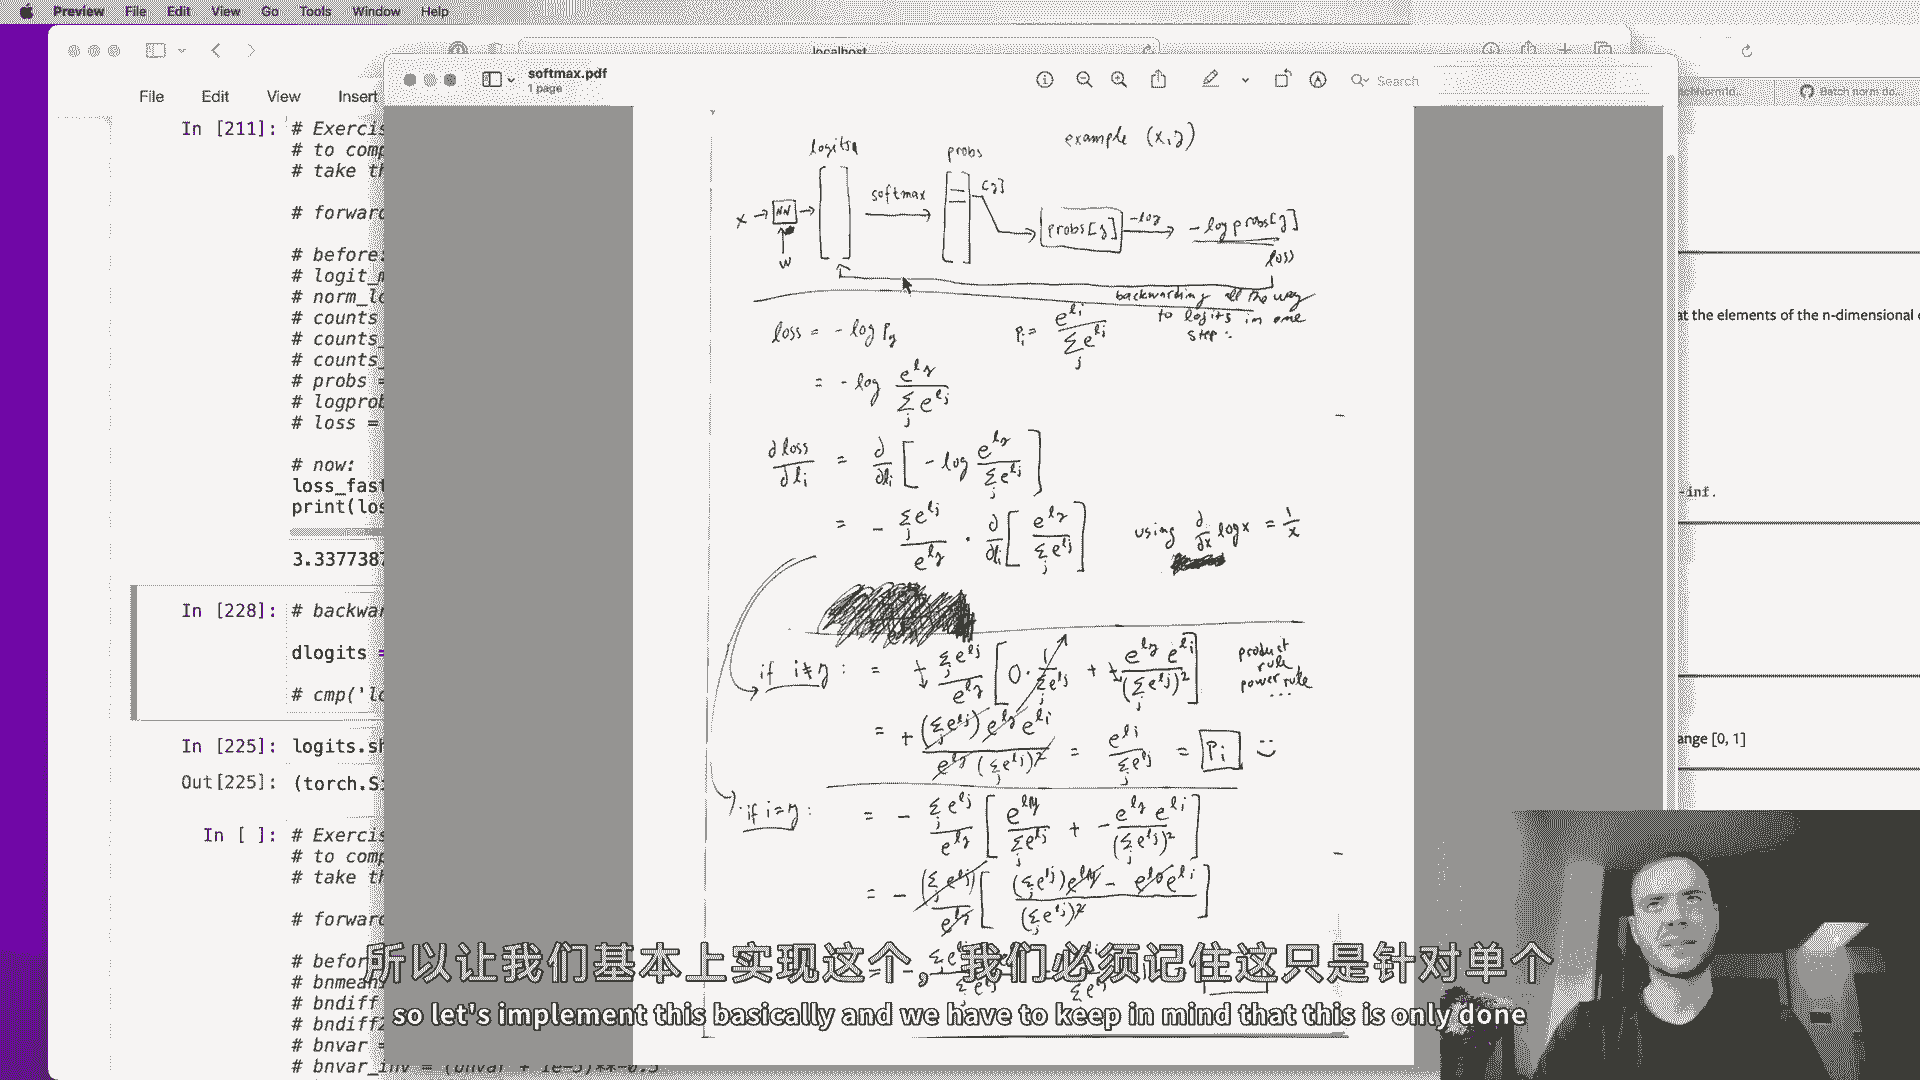 Preview File Edit View Go Tools Window Help
localhost
softmax.pdf
1 page
Search
File Edit View Insert
Batch norm do...
In [211]: # Exercis
# to comp
# take th
# forward
# before:
# logit_m
# norm_lo
# counts
# counts_
# counts_
# probs =
# logprob
# loss =
# now:
loss_fast
print(los
3.3377387
In [228]: # backwar
dlogits =
# cmp('lo
In [225]: logits.sh
Out[225]: (torch.Si
In [ ]: # Exercis
# to comp
# take th
# forward
# before
# bnmean
# bndiff
# bndiff2
# bnvar =
# bnvar_inv = (bnvar + 1e-5)**-0.5
example (x,y)
logits
probs
x → NN →
softmax
[y]
probs[y]
-log
- log probs[y]
w
loss
backwarding all the way
to logits in one
step:
loss = - log Py
Pi = e^li / Σj e^lj
= - log e^ly / Σj e^lj
∂loss/∂li = ∂/∂li [ - log e^ly / Σj e^lj ]
= - Σj e^lj / e^ly · ∂/∂li [ e^ly / Σj e^lj ]
using ∂/∂x log x = 1/x
if i≠y : = + Σj e^lj / e^ly [ 0 · 1 / Σj e^lj + + e^ly e^li / (Σj e^lj)² ]
product
rule,
power rule
...
= + (Σj e^lj) e^ly e^li / e^ly (Σj e^lj)² = e^li / Σj e^lj = Pi
if i=y : = - Σj e^lj / e^ly [ e^ly / Σj e^lj + - e^ly e^li / (Σj e^lj)² ]
= - (Σj e^lj) / e^ly [ (Σj e^lj) e^ly - e^ly e^li / (Σj e^lj)² ]
at the elements of the n-dimensional
-inf.
ange [0, 1]
所以让我们基本上实现这个，我们必须记住这只是针对单个
so let's implement this basically and we have to keep in mind that this is only done